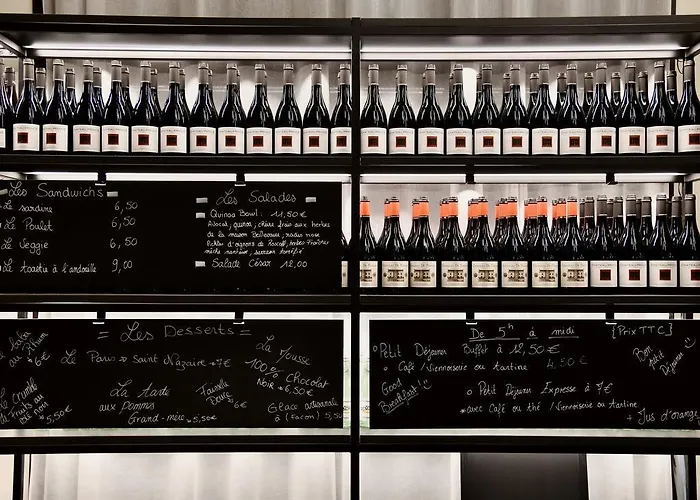 Les Sandwichs
Le sardine 6,50
Le Poulet 6,50
Le Veggie 6,50
Le toastie à l'andouille 9,00
Les Salades
Quinoa Bowl: 11,50€
Avocat, quinoa, chèvre frais aux herbes
de la maison
Pickles d'oignons de
Salade César 12,00
= Les Desserts =
au Rhum
6€
Le Paris - Saint Nazaire 7€
La Mousse
100% Chocolat
Noir 6,50€
Le Crumble
5,50€
La tarte
aux pommes
Grand-mère 5,50€
Faisselle
Douce
6€
Glace artisanale
à (Facon) 5,50€
De 5h à midi
{Prix TTC}
Petit Déjeuner Buffet à 12,50€
Café / Viennoiserie ou tartine 4,50€
Good
Breakfast!
Bon
petit
Déjeuner
Petit Déjeuner Expresse à 7€
avec Café ou thé / Viennoiserie ou tartine
+ Jus d'orange